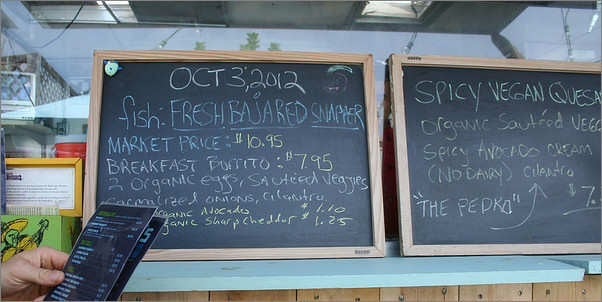 OCT 3, 2012
fish: FRESH BAJA RED SNAPPER
MARKET PRICE: $10.95
BREAKFAST BURRITO: $7.95
2 organic eggs, sautéed veggies
caramelized onions, cilantro
organic Avocado $1.10
organic sharp cheddar $1.25
SPICY VEGAN QUESA
organic sautéed VEGG
spicy Avocado cream
(NO DAIRY) cilantro
"THE PEDRO" $7.